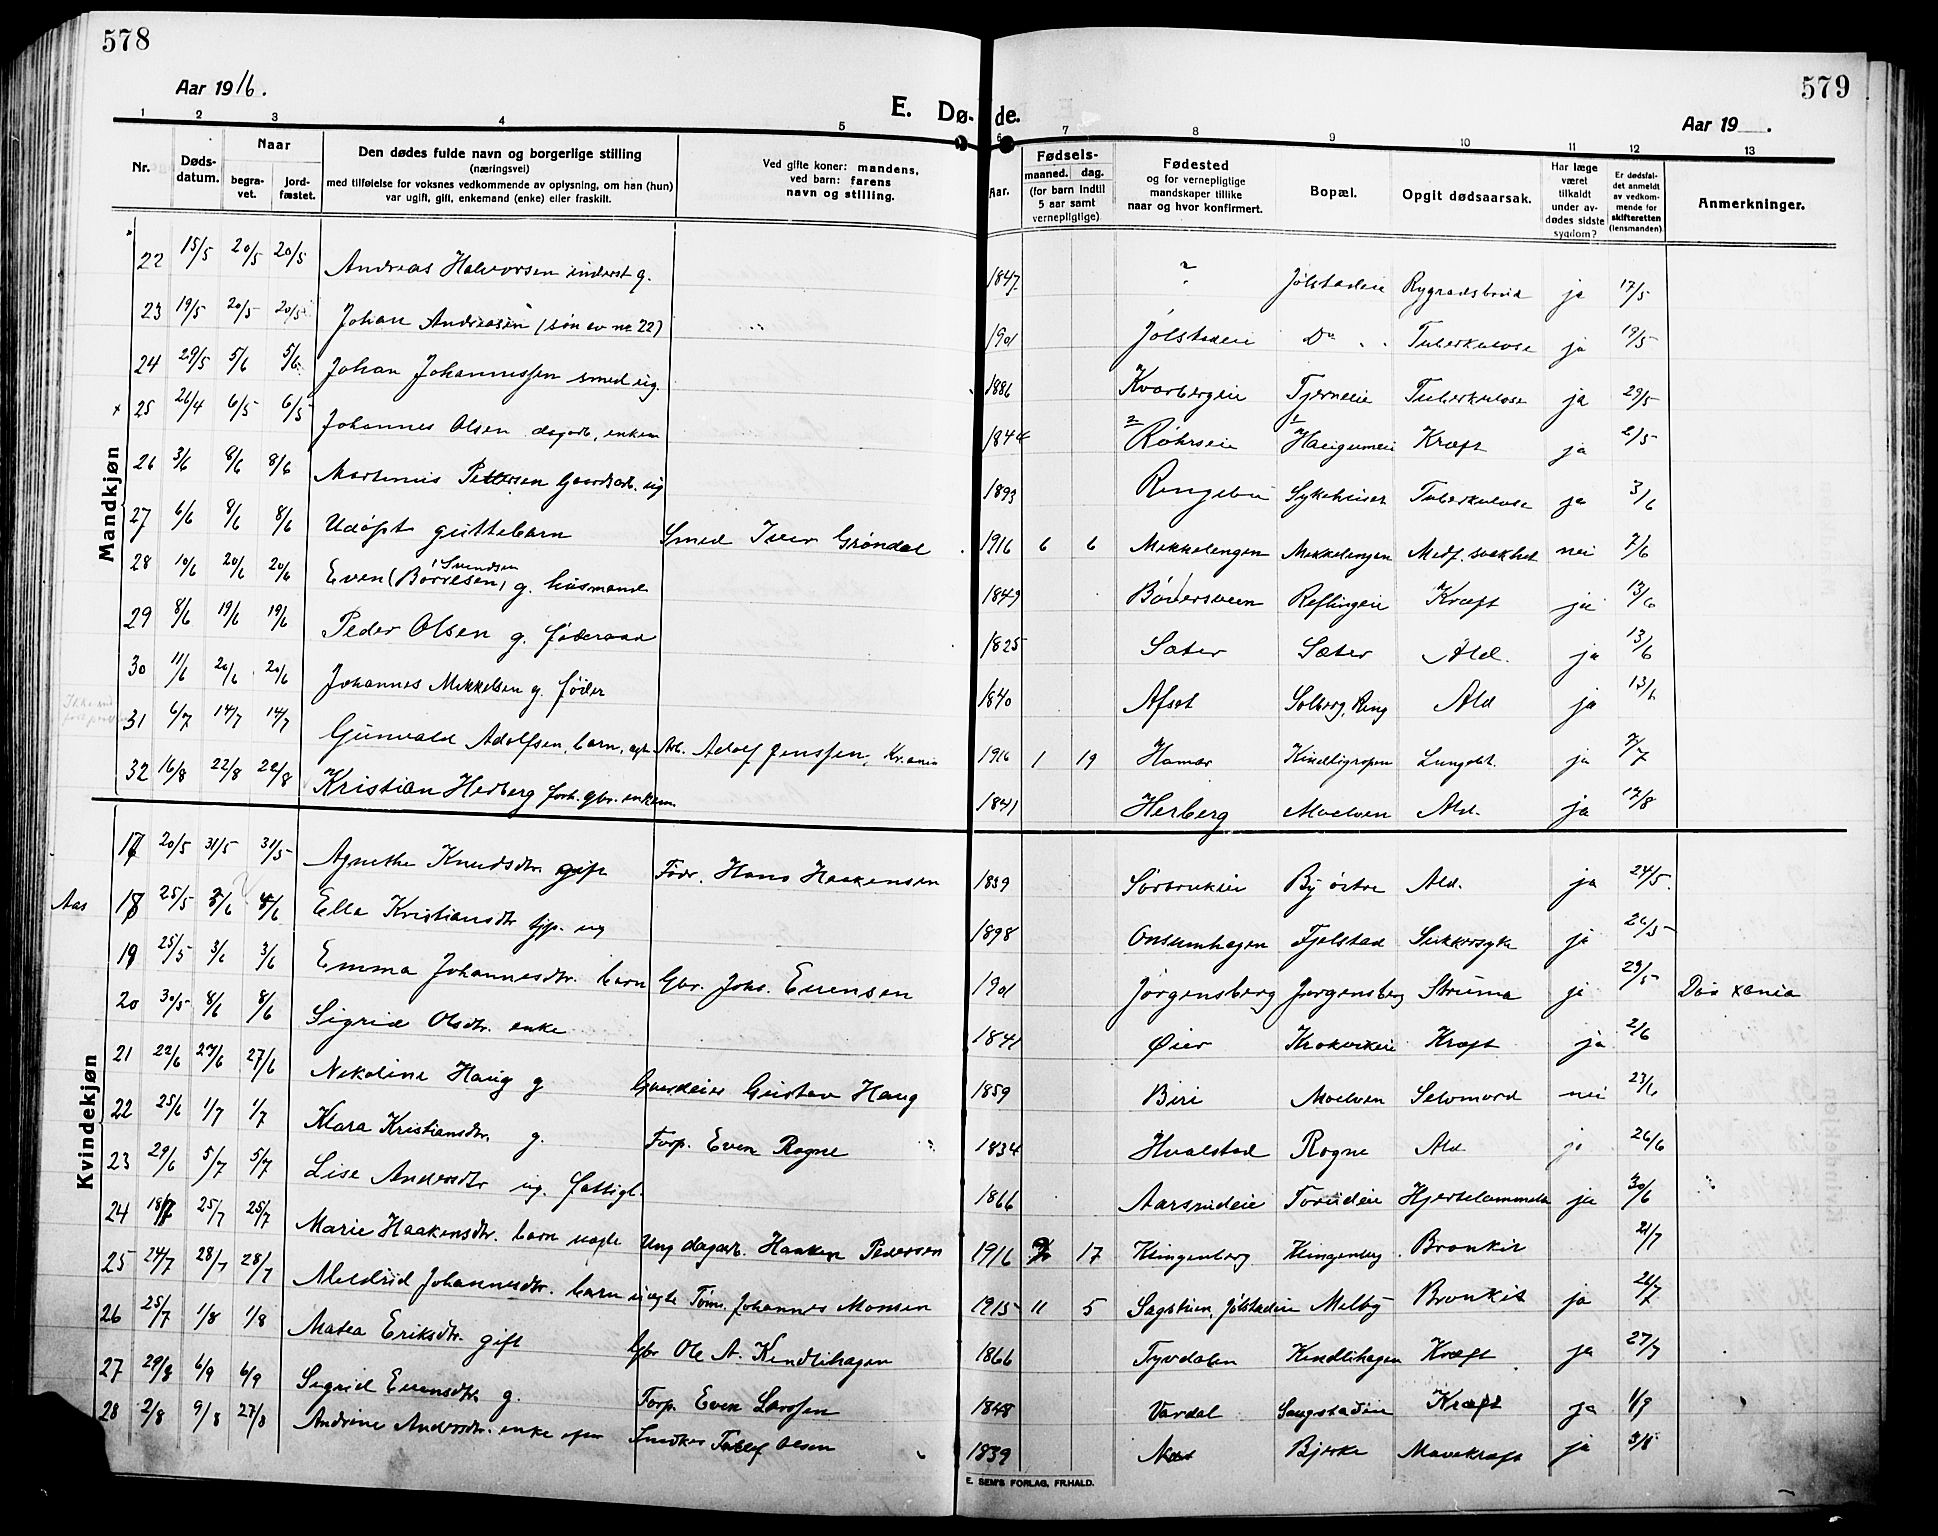 578
579
Aar 1916.
E. Døde.
Aar 19 .
1 2 3 4 5 6 7 8 9 10 11 12 13
Nr. Døds-datum. Naar begra-vet. jord-fæstet. Den dødes fulde navn og borgerlige stilling (næringsvei) med tilføielse for voksnes vedkommende av oplysning, om han (hun) var ugift, gift, enkemand (enke) eller fraskilt. Ved gifte koner: mandens, ved barn: farens navn og stilling. Aar. Fødsels-maaned. dag. (for barn indtil 5 aar samt vernepligtige) Fødested og for vernepligtige mandskaper tillike naar og hvor konfirmert. Bopæl. Opgit dødsaarsak. Har læge været tilkaldt under av-dødes sidste sygdom? Er dødsfal-det anmeldt av vedkom-mende for skifteretten (lensmanden) Anmerkninger.
Mandkjøn
22 15/5 20/5 20/5 Andreas Halvorsen inderst g. 1847 ? Jølstadeie Rygradsbrud ja 17/5
23 19/5 20/5 20/5 Johan Andreasen (søn av nr 22) 1901 Jølstadeie Do Tuberkulose ja 19/5
24 29/5 5/6 5/6 Johan Johannessen smed ug. 1886 Kvarbergeie Tjerneeie Tuberkulose ja 29/5
x 25 26/4 6/5 6/5 Johannes Olsen dagarb. enkem 1844 Røhrseie Haugumeie Kræft ja 2/5
26 3/6 8/6 8/6 Martinius Pettersen Gaardsarb. ug 1893 Ringebu Sykehuset Tuberkulose ja 3/6
27 6/6 8/6 8/6 Udøpt guttebarn Smed Iver Grøndal 1916 6 6 Mikkelengen Mikkelengen Medf. svakhed nei 7/6
28 10/6 20/6 20/6 Even (Børresen) Svendsen g. husmand 1849 Bøverseien Reflingeie Kræft ja 13/6
29 8/6 19/6 19/6 Peder Olsen g. føderaad 1825 Sæter Sæter Ald. ja 13/6
30 11/6 20/6 20/6 Johannes Mikkelsen g. føder 1840 Afset Solberg, Ring Ald ja 13/6
31 6/7 14/7 14/7 Gunvald Adolfsen, barn, egte Arb. Adolf Jenssen, Kr.ania 1916 1 19 Hamar Kindligropen Lungebet. ja 7/7
32 16/8 22/8 22/8 Kristian Herberg forh. gbr. enkem 1841 Herberg Moelven Ald. ja 17/8
Kvindekjøn
17 20/5 31/5 31/5 Agnethe Knudsdtr. gift Fødr. Hans Haakensen 1839 Sørbrukeie By østre Ald. ja 24/5
Aas 18 25/5 3/6 4/6 Ella Kristiansdtr tjp. ug 1898 Onsumhagen Fjelstad Sukkersyke ja 26/5
19 25/5 3/6 3/6 Emma Johannesdtr. barn Gbr. Johs. Evensen 1901 Jørgensberg Jørgensberg Struma ja 29/5 Død Xania
20 30/5 8/6 8/6 Sigrid Olsdtr. enke 1841 Øier Krokvikeie Kræft ja 2/6
21 22/6 27/6 27/6 Nikoline Haug g Gaardeier Gustav Haug 1859 Biri Moelven Selvmord nei 23/6
22 25/6 1/7 1/7 Klara Kristiansdtr. g. Forp. Even Rogne 1834 Hvalstad Rogne Ald ja 26/6
23 29/6 5/7 5/7 Lise Andersdtr ug. fattigl. 1866 Aarsrudeie Torudeie Hjertelammelse ja 30/6
24 18/7 25/7 25/7 Marie Haakensdtr. barn uegte Ung dagarb. Haaken Pedersen 1916 17 Klingenberg Klingenberg Bronkit 21/7
25 24/7 28/7 28/7 Meldrid Johannesdtr. barn uegte Tøm. Johannes Monsen 1915 11 5 Sagstuen, Jølstadeie Melby Bronkit ja 26/7
26 25/7 1/8 1/8 Matea Eriksdtr. gift Gbr Ole A. Kindlihagen 1866 Tyvdalen Kindlihagen Kræft ja 27/7
27 29/8 6/9 6/9 Sigrid Evensdtr. g. Forp. Even Larssen 1848 Vardal Saugstadeie Kræft ja 1/9
28 2/8 9/8 27/8 Andrine Andersdtr. enke efter Snedker Tollef Olsen 1839 Næs Bjerke Mavekræft ja 3/8
E. SEM'S FORLAG, FR.HALD.